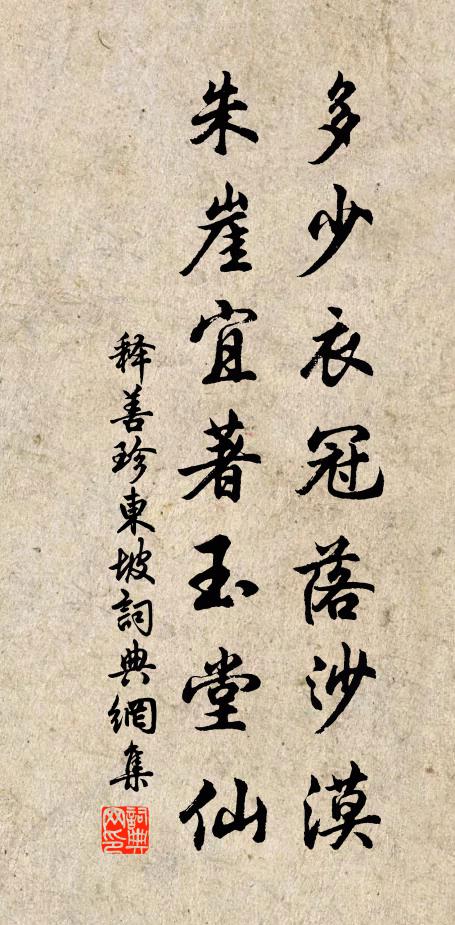 多少衣冠落沙漠
朱崖宜著玉堂仙
释善珍東坡詞典網集
詞典網印